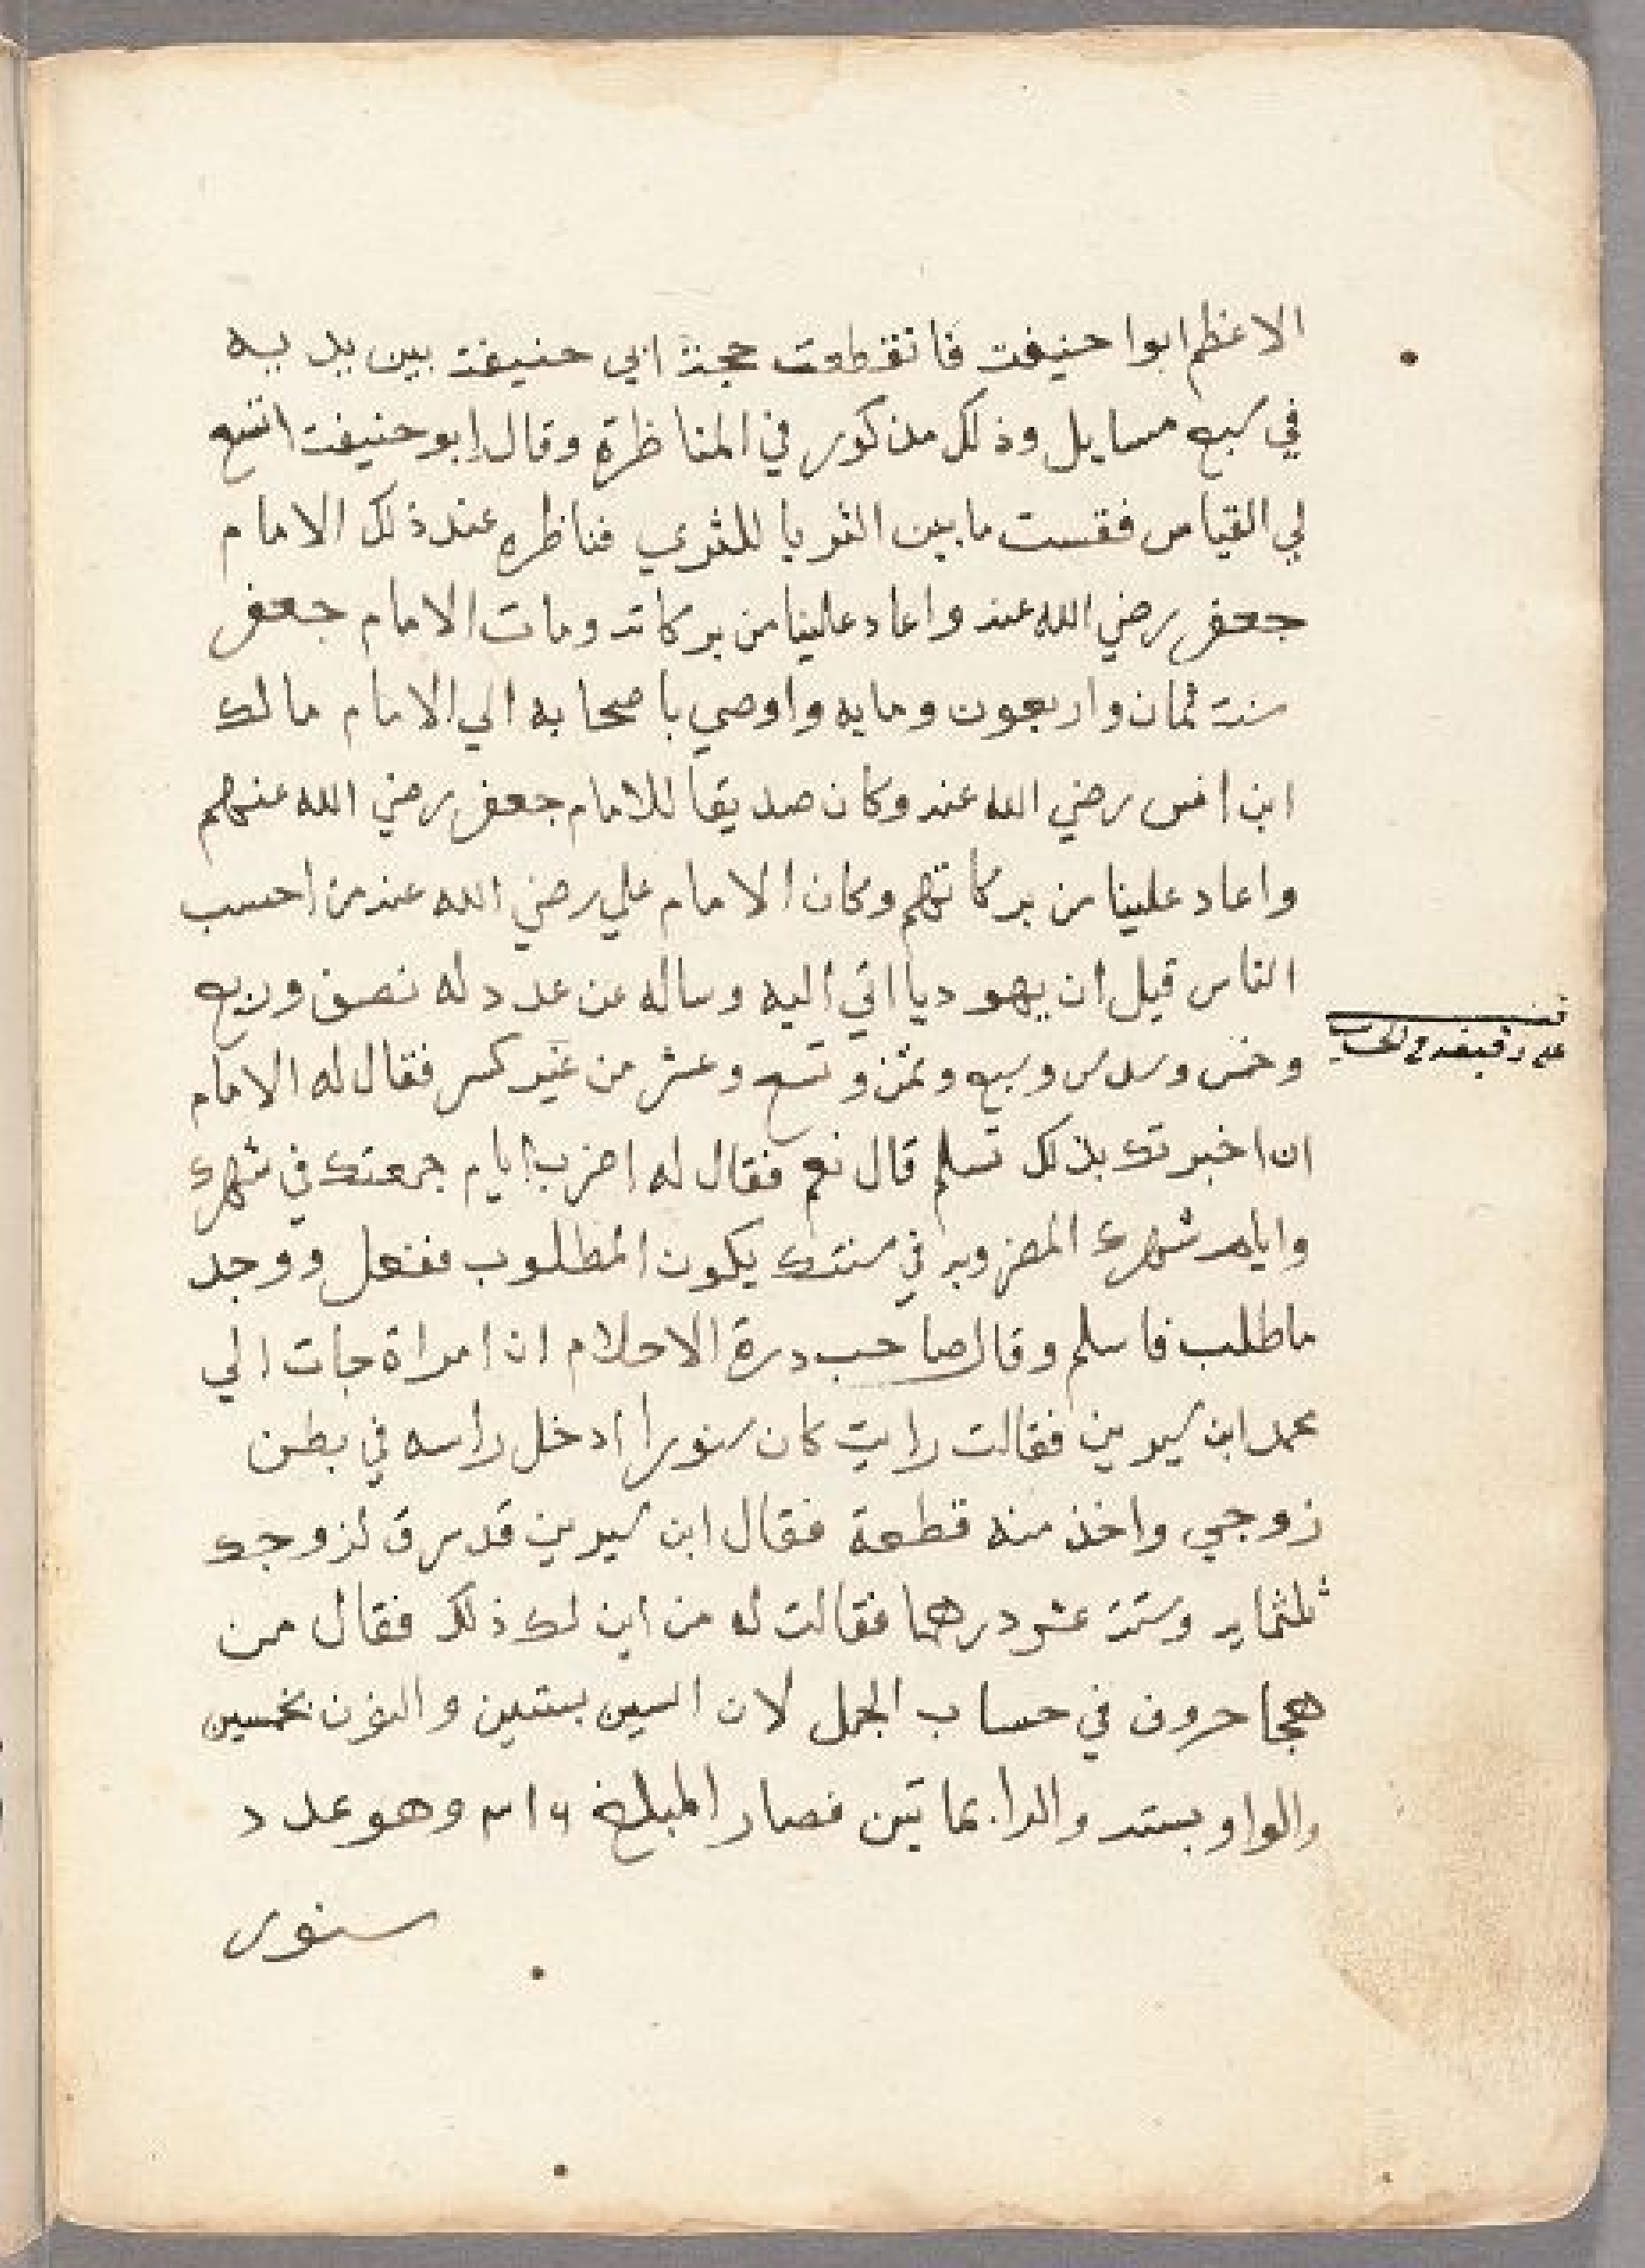 الاعظم ابوا حنيفة فانقطعت حجة ابي حنيفة بين يديه
في سبع مسايل وذلك مذكور في المناظرة وقال ابو حنيفة اتسع
لي القياس فقست ما بين الثريا للثري فناظره عند ذلك الامام
جعفر رضي الله عنه واعاد علينا من بركاته ومات الامام جعفر
سنة ثمان واربعون ومايه واوصي باصحابه الي الامام مالك
ابن انس رضي الله عنه وكان صديقا للامام جعفر رضي الله عنهم
واعاد علينا من بركاتهم وكان الامام علي رضي الله عنه من احسب
الناس قيل ان يهوديا اتي اليه وساله عن عدد له نصف وربع
وخمس وسدس وسبع وثمن وتسع وعشر من غير كسر فقال له الامام
ان اخبرتك بذلك تسلم قال نعم فقال له اضرب ايام جمعتك في شهرك
وايام شهرك المضروبه في سنتك يكون المطلوب ففعل ووجد
ما طلب فاسلم وقال صاحب درة الاحلام ان امراة جات الي
محمد ابن سيرين فقالت رايت كان سنورا ادخل راسه في بطن
زوجي واخذ منه قطعة فقال ابن سيرين قد سرق لزوجك
ثلثمايه وستة عشر درهما فقالت له من اين لك ذلك فقال من
هجا حروف في حساب الجمل لان السين بستين والنون بخمسين
والواو بسته والرا بماتين فصار المبلغ ٣١٦ وهو عدد
سنور